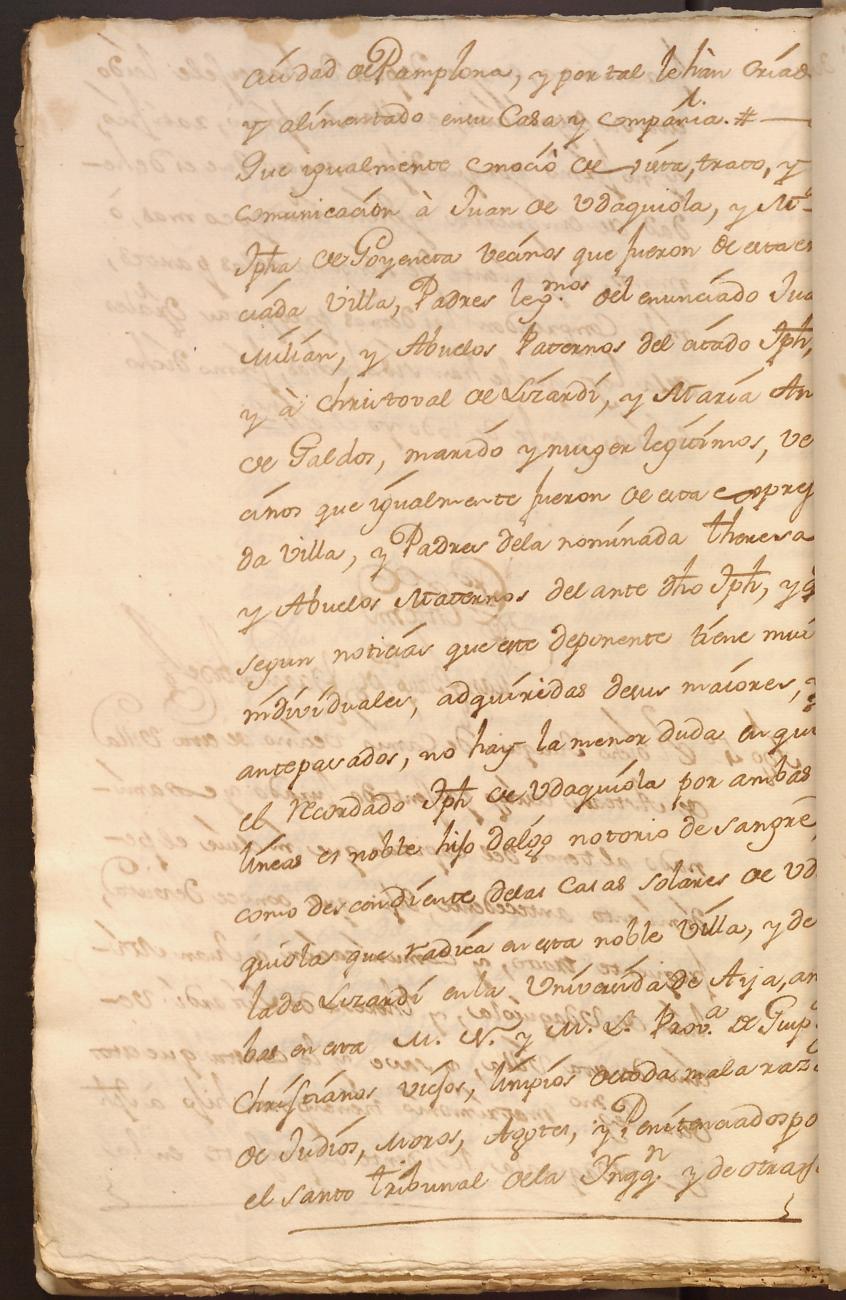 ciudad de Pamplona, y por tal le hàn criad
y alimentado en su Casa y compánìa. #
Que igualmente conociò de vista, trato, y
comunicación à Juan de Vdaquiola, y Mª
Jpha de Goyeneta vecinos que fueron de esta en
ciada villa, Padres leg.mos del enunciado Jua
Milián, y Abuelos Paternos del citado Jph,
y à Christoval de Lizardi, y María An
de Galdos, marido y muger legitimos, ve
cinos que igualmente fueron de esta expres
da villa, y Padres dela nominada theresa
y Abuelos Maternos del ante dho Jph, y q
segun noticias que este deponente tiene mui
individuales, adquiridas desus maiores, y
antepasados, no hay la menor duda en qu
el recordado Jph de Vdaquiola por ambas
lineas es noble hijo dalgo notorio de sangre,
como descendiente delas Casas solares de Vd
quiola que radica en esta noble Villa, y de
la de Lizardi en la Universidad de Aya, am
bas en esta M. N. y M. L. Prov.a de Guip
Christianos viejos, limpios detoda mala raz
de Judíos, Moros, Agotes, y Penitenciados po
el santo tribunal dela Ynqq.n y de otras